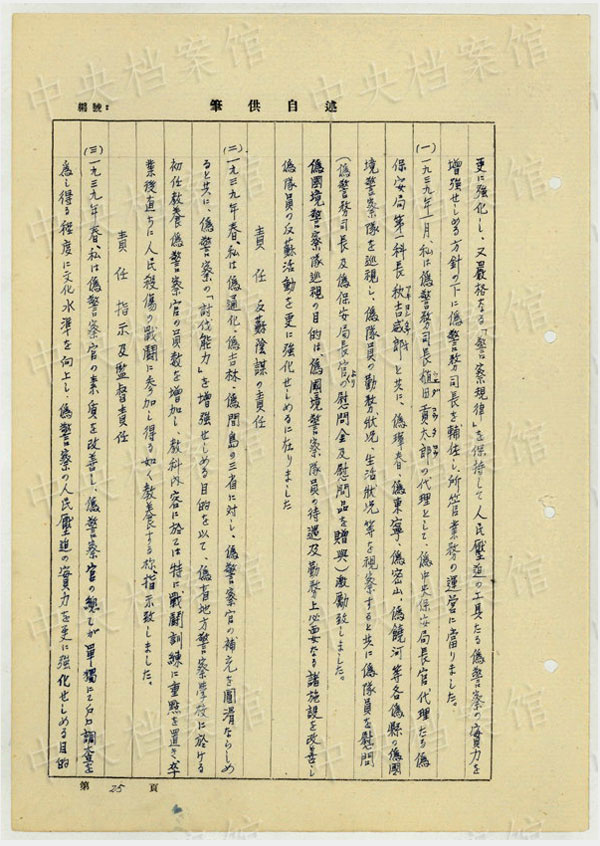 述自供筆
編號：
更に強化し、又嚴格なる「警察規律」を保持して人民壓迫の工具たる偽警察の實力を
增强せしめる方針の下に偽警務司長を輔佐し、所管業務の運営に當りました。
(一)一九三九年一月、私は偽警務司長植田貢太郎の代理として、偽中央保安局長官代理たる偽
保安局第一科長秋吉威郎と共に、偽琿春、偽東寧、偽密山、偽饒河等各偽縣の偽國
境警察隊を巡視し、偽隊員の勤務狀況、生活狀況等を視察すると共に偽隊員を慰問
(偽警務司長及偽保安局長官より の慰問金及慰問品を贈與)激勵致しました。
偽國境警察隊巡視の目的は、偽國境警察隊員の待遇及勤務上必要なる諸施設を改善し
偽隊員の反蘇活動を更に強化せしめるに在りました
責任 反蘇陰謀の責任
(二)一九三九年春、私は偽通化、偽吉林、偽間島の三省に対し、偽警察官の補充を圓滑ならしめ
ると共に、偽警察の「討伐能力」を增强せしめる目的を以て、偽省地方警察學校に於ける
初任教養偽警察官の員数を増加し、教科内容に於ては特に戰鬪訓練に重點を置き、卒
業後直ちに人民殺傷の戰鬪に参加し得る如く教養する様指示致しました。
責任 指示及監督責任
(三)一九三九年春、私は偽警察官の素質を改善し、偽警察官の
為し得る程度に文化水準を向上し、偽警察の人民壓迫の實力を更に強化せしめる目的
第 25 頁
中央档案馆